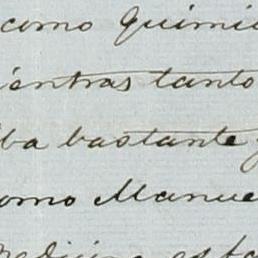 como quimi
ientras tanto
ba bastante
omo Manue